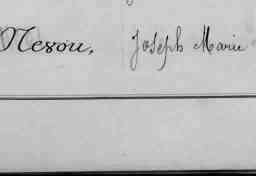 Nezou, Joseph Marie